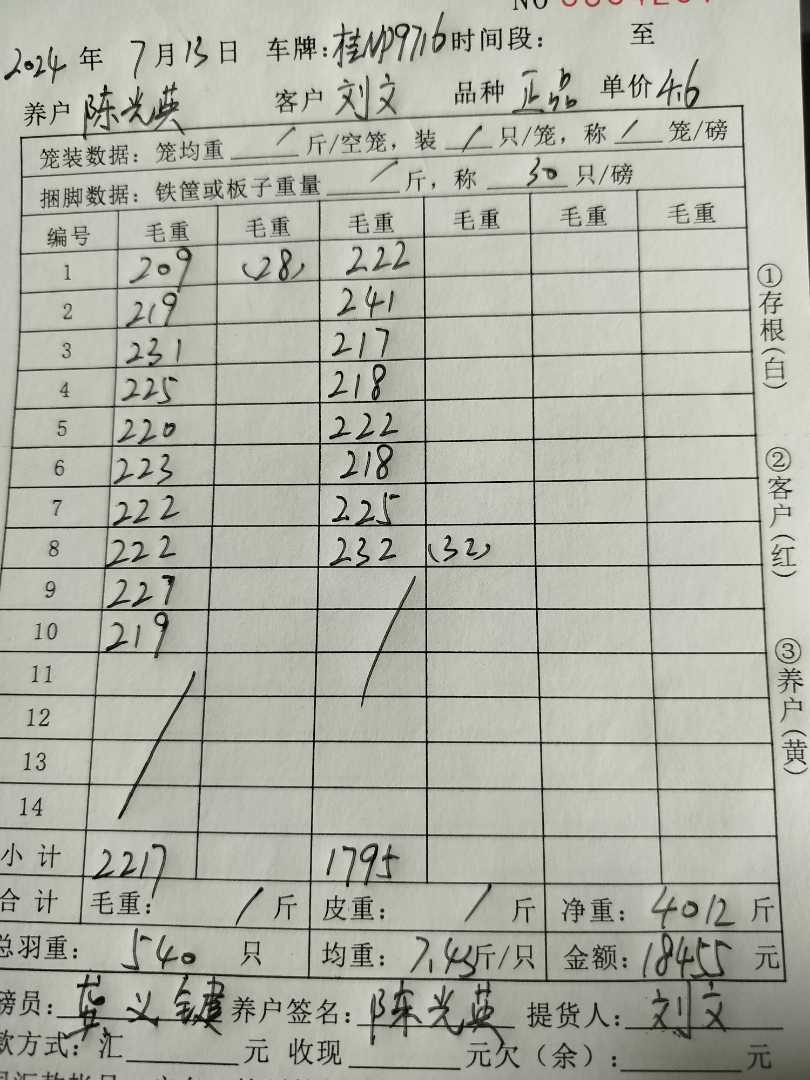 2024 年 7 月 13 日 车牌: 桂MP9716 时间段: 至
养户 陈光英 客户 刘文 品种 正品 单价 4.6
笼装数据: 笼均重 / 斤/空笼, 装 / 只/笼, 称 / 笼/磅
捆脚数据: 铁筐或板子重量 / 斤, 称 30 只/磅
编号 毛重 毛重 毛重 毛重 毛重 毛重
1 209 (28) 222
2 219 241
3 231 217
4 225 218
5 220 222
6 223 218
7 222 225
8 222 232 (32)
9 227
10 219
11
12
13
14
小计 2217 1795
合计 毛重: / 斤 皮重: / 斤 净重: 4012 斤
总羽重: 540 只 均重: 7.43斤/只 金额: 18455 元
磅员: 义键 养户签名: 陈光英 提货人: 刘文
款方式: 汇 元 收现 元欠(余): 元
①存根(白)
②客户(红)
③养户(黄)